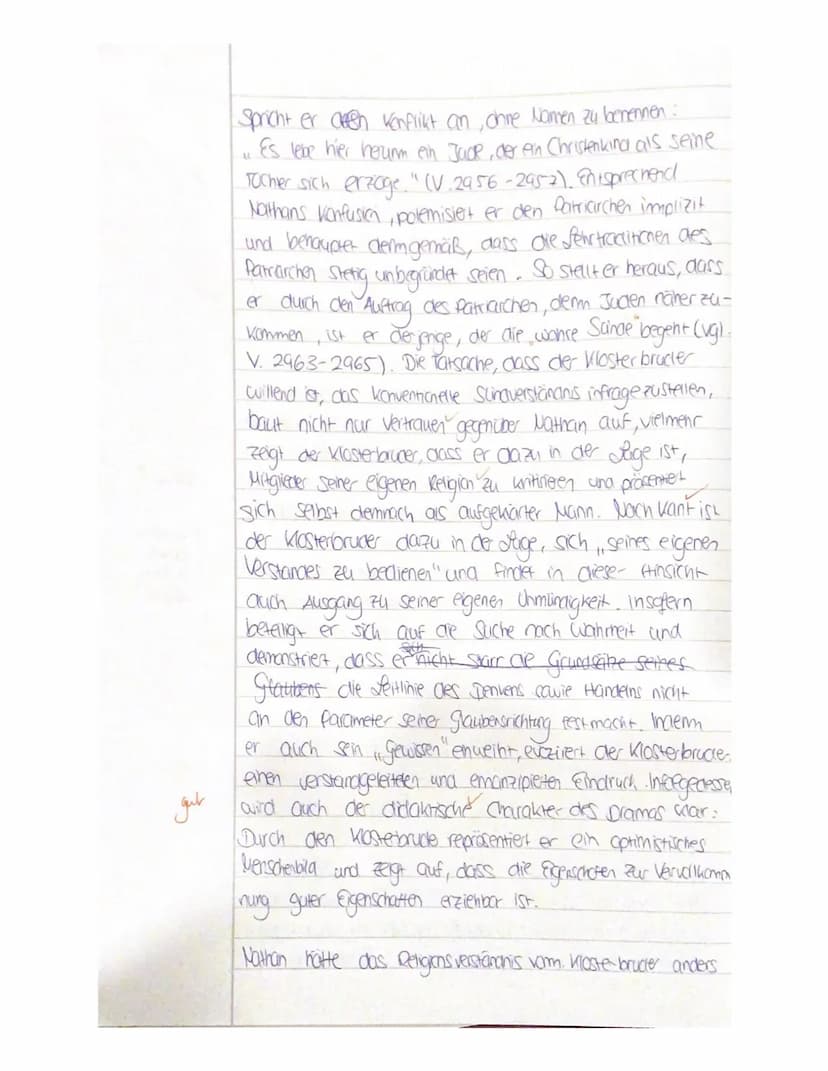 spricht er den Konflikt an, ohne Namen zu benennen:
„Es lebe hier herum ein Jude, der ein Christenkind als seine
Tochter sich erzöge." (V. 2956-2957). Entsprechend
Nathans Konfusion, polemisiert er den Patriarchen implizit
und behauptet demgemäß, dass die Lehrtraditionen des
Patriarchen stetig unbegründet seien. So stellt er heraus, dass
er durch den Auftrag des Patriarchen, denn Juden näher zu-
kommen, ist er derjenige, der die „wahre Sünde" begeht (vgl.
V. 2963-2965). Die Tatsache, dass der Klosterbruder
willend ist, das konventionelle Sündverständnis infrage zu stellen,
baut nicht nur Vertrauen gegenüber Nathan auf, vielmehr
zeigt der Klosterbruder, dass er dazu in der Lage ist,
Mitglieder seiner eigenen Religion zu kritisieren und präsentiert
sich selbst demnach als aufgeklärter Mann. Nach Kant ist
der Klosterbruder dazu in der Lage, sich „seines eigenen
Verstandes zu bedienen" und findet in dieser Hinsicht
auch Ausgang zu seiner eigenen Unmündigkeit. Insofern
beteiligt er sich auf die Suche nach Wahrheit und
demonstriert, dass er nicht starr die Grundsätze seines
Glaubens die Leitlinie des Denkens sowie Handelns nicht
an den Parameter seiner Glaubensrichtung festmacht. Indem
er auch sein „Gewissen" einweiht, evoziert der Klosterbruder
einen verstandgeleiteten und emanzipierten Eindruck. Infolgedessen
gut wird auch der didaktische Charakter des Dramas klar:
Durch den Klosterbruder repräsentiert er ein optimistisches
Menschenbild und zeigt auf, dass die Eigenschaften zur Vervollkomm
nung guter Eigenschaften erziehbar ist.
Nathan hätte das Religionsverständnis vom Klosterbruder anders